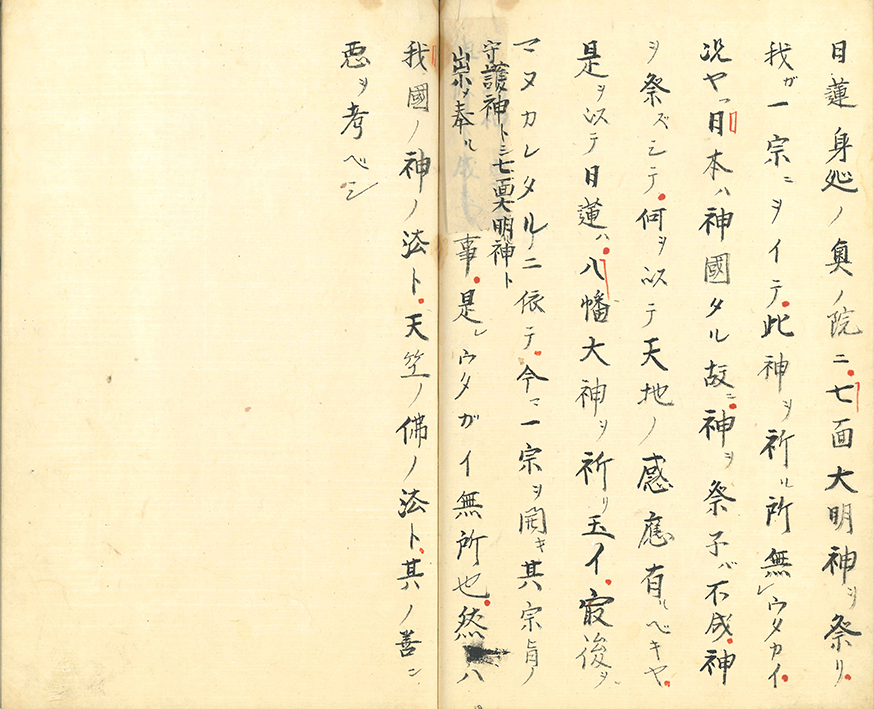 日蓮身処ノ奥ノ院ニ七面大明神ヲ祭リ
我ガ一宗ニヲイテ此神ヲ祈ル所無レウタカイ
況ヤ日本ハ神國タル故ニ神ヲ祭子バ不成神
ヲ祭ズシテ何ヲ以テ天地ノ感應有ルベキヤ
是ヲ以テ日蓮ハ八幡大神ヲ祈リ玉イ㝡後ヲ
マヌカレタルニ依テ今マ一宗ヲ開キ其宗旨ノ
守護神トシ七面大明神ト
崇メ奉ル事是レウタガイ無所也然ハ
我國ノ神ノ法ト天竺ノ佛ノ法ト其ノ善ン
悪ヲ考ベシ